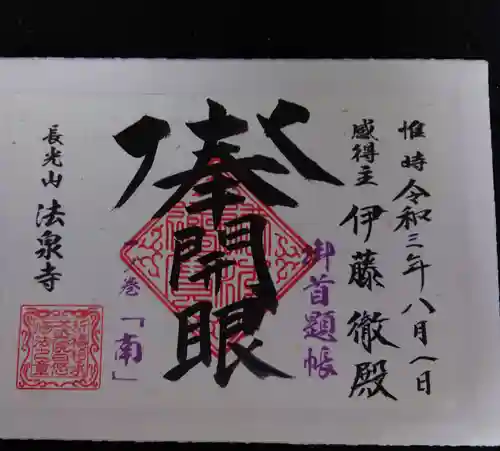 惟時令和三年八月八日
感得主 伊藤徹殿
御首題帳
奉開眼
巻「南」
長光山 法泉寺